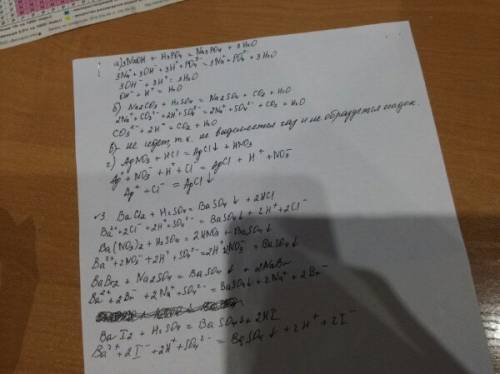 а) 3NaOH + H₃PO₄ = Na₃PO₄ + 3H₂O
3Na⁺ + 3OH⁻ + 3H⁺ + PO₄³⁻ = 3Na⁺ + PO₄³⁻ + 3H₂O
3OH⁻ + 3H⁺ = 3H₂O
OH⁻ + H⁺ = H₂O
б) Na₂CO₃ + H₂SO₄ = Na₂SO₄ + CO₂ + H₂O
2Na⁺ + CO₃²⁻ + 2H⁺ + SO₄²⁻ = 2Na⁺ + SO₄²⁻ + CO₂ + H₂O
CO₃²⁻ + 2H⁺ = CO₂ + H₂O
в) не идет, т.к. не выделяется газ и не образуется осадок.
г) AgNO₃ + HCl = AgCl↓ + HNO₃
Ag⁺ + NO₃⁻ + H⁺ + Cl⁻ = AgCl + H⁺ + NO₃⁻
Ag⁺ + Cl⁻ = AgCl↓
3. BaCl₂ + H₂SO₄ = BaSO₄↓ + 2HCl
Ba²⁺ + 2Cl⁻ + 2H⁺ + SO₄²⁻ = BaSO₄↓ + 2H⁺ + 2Cl⁻
Ba(NO₃)₂ + H₂SO₄ = 2HNO₃ + BaSO₄↓
Ba²⁺ + 2NO₃⁻ + 2H⁺ + SO₄²⁻ = 2H⁺ + 2NO₃⁻ + BaSO₄↓
BaBr₂ + Na₂SO₄ = BaSO₄↓ + 2NaBr
Ba²⁺ + 2Br⁻ + 2Na⁺ + SO₄²⁻ = BaSO₄↓ + 2Na⁺ + 2Br⁻
BaI₂ + H₂SO₄ = BaSO₄↓ + 2HI
Ba²⁺ + 2I⁻ + 2H⁺ + SO₄²⁻ = BaSO₄↓ + 2H⁺ + 2I⁻